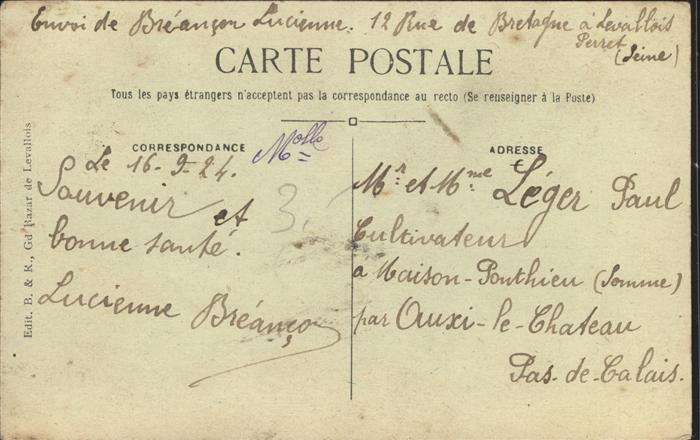 Envoi de Bréançon Lucienne. 12 Rue de Bretagne à Levallois
Perret
(Seine)
CARTE POSTALE
Tous les pays étrangers n'acceptent pas la correspondance au recto (Se renseigner à la Poste)
CORRESPONDANCE
Le 16-9-24.
Souvenir et
bonne santé.
Lucienne Bréançon
3.
ADRESSE
Mr et Mme Léger Paul
Cultivateur
à Maison-Ponthieu (Somme)
par Auxi-le-Chateau
Pas-de-Calais.
Edit. B. & R., Gd Bazar de Levallois